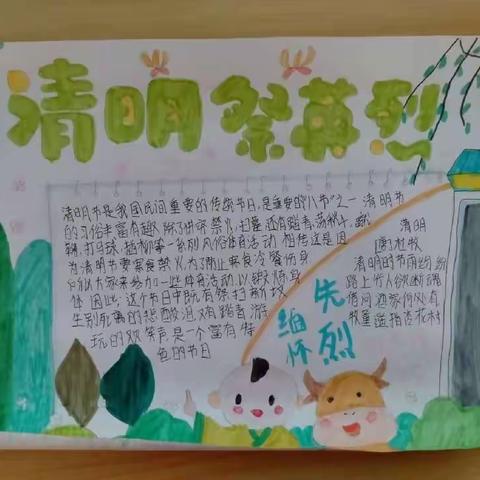 清明祭英烈
清明节是我国民间重要的传统节日,是重要的"八节"之一 清明节
的习俗丰富有趣 除了讲究 禁火、扫墓 还有踏青、荡秋千、蹴
鞠、打马球、插柳等一系列风俗体育活动 相传这是因
为清明节要寒食禁火,为了防止寒食冷餐伤身
所以大家来参加一些体育活动,以锻炼身
体 因此,这个节日中既有祭扫新坟
生别死离的悲酸泪,又有踏青游
玩的欢笑声是一个富有特
色的节日
清明
唐 杜牧
清明时节雨纷纷
路上行人欲断魂
借问酒家何处有
牧童遥指杏花村
缅怀
先烈